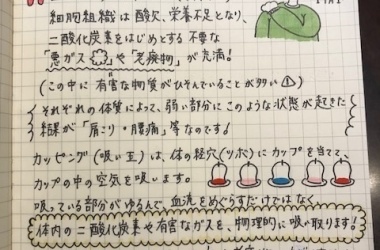 細胞組織は酸欠、栄養不足となり、
二酸化炭素をはじめとする不要な
「悪ガス」や「老廃物」が充満!
(この中に有害な物質がひそんでいることが多い!)
それぞれの体質によって、弱い部分にこのような状態が起きた
結果が「肩こり・腰痛」等なのです!
カッピング(吸い玉)は、体の経穴(ツボ)にカップを当て、
カップの中の空気を吸います。
吸っている部分がゆるんで、血流をめぐらすだけではなく
体内の二酸化炭素や有害なガスを、物理的に吸い取ります!